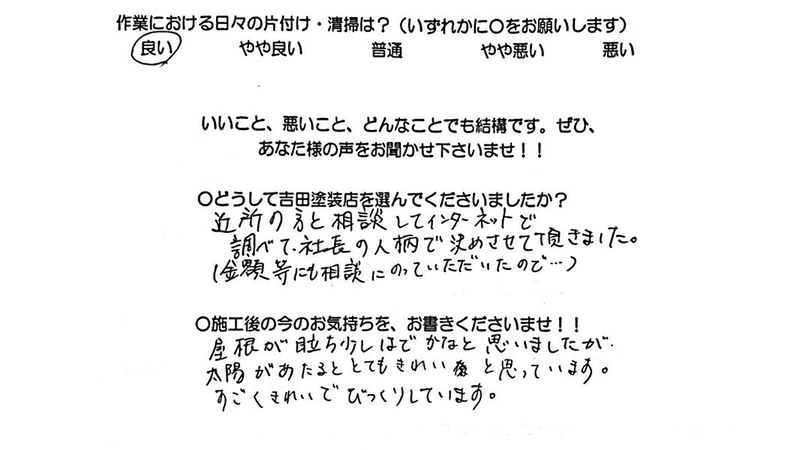 作業における日々の片付け・清掃は？（いずれかに〇をお願いします）
良い　やや良い　普通　やや悪い　悪い
いいこと、悪いこと、どんなことでも結構です。ぜひ、
あなた様の声をお聞かせ下さいませ！！
〇どうして吉田塗装店を選んでくださいましたか？
近所の方と相談してインターネットで
調べて、社長の人柄で決めさせて頂きました。
(金額等にも相談にのっていただいたので…)
〇施工後の今のお気持ちを、お書きくださいませ！！
屋根が目立ち少しはでかなと思いましたが、
太陽があたるととてもきれい と思っています。
すごくきれいでびっくりしています。